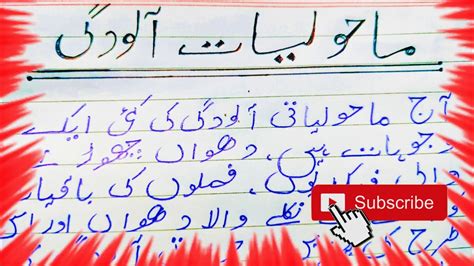 ماحولیات آلودگی
آج ماحولیاتی آلودگی کی کئی ایک
وجوہات ہیں، دھواں چھوڑنے
والی فیکٹریوں، فصلوں کی باقیات
نکلنے والا دھواں اور اس
طرح کی
Subscribe